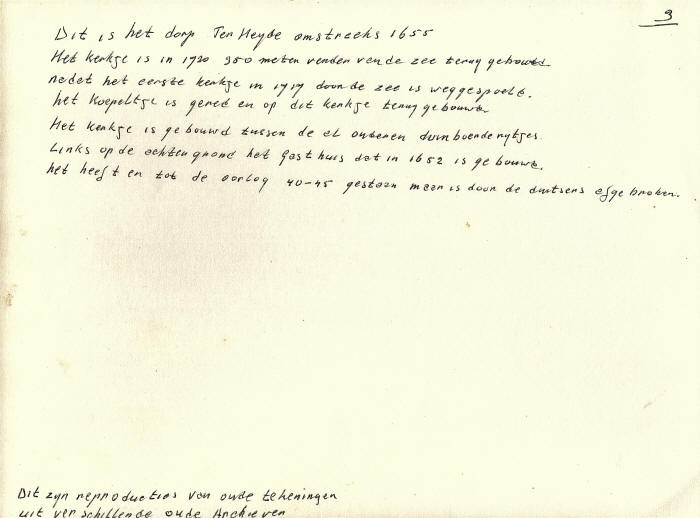 9
Dit is het dorp Ter Heyde omstreeks 1655
Het kerkje is in 1720 350 meter verder van de zee terug gebouwd
nadat het eerste kerkje in 1717 door de zee is weggespoeld.
het Koepeltje is gered en op dit kerkje terug gebouwd.
Het kerkje is gebouwd tussen de al oudere duinboerderytjes.
Links op de achtergrond het Gasthuis dat in 1652 is gebouwd.
het heeft er tot de oorlog 40-45 gestaan maar is door de duitsers afgebroken.
Dit zyn reproducties van oude tekeningen
uit verschillende oude Archieven